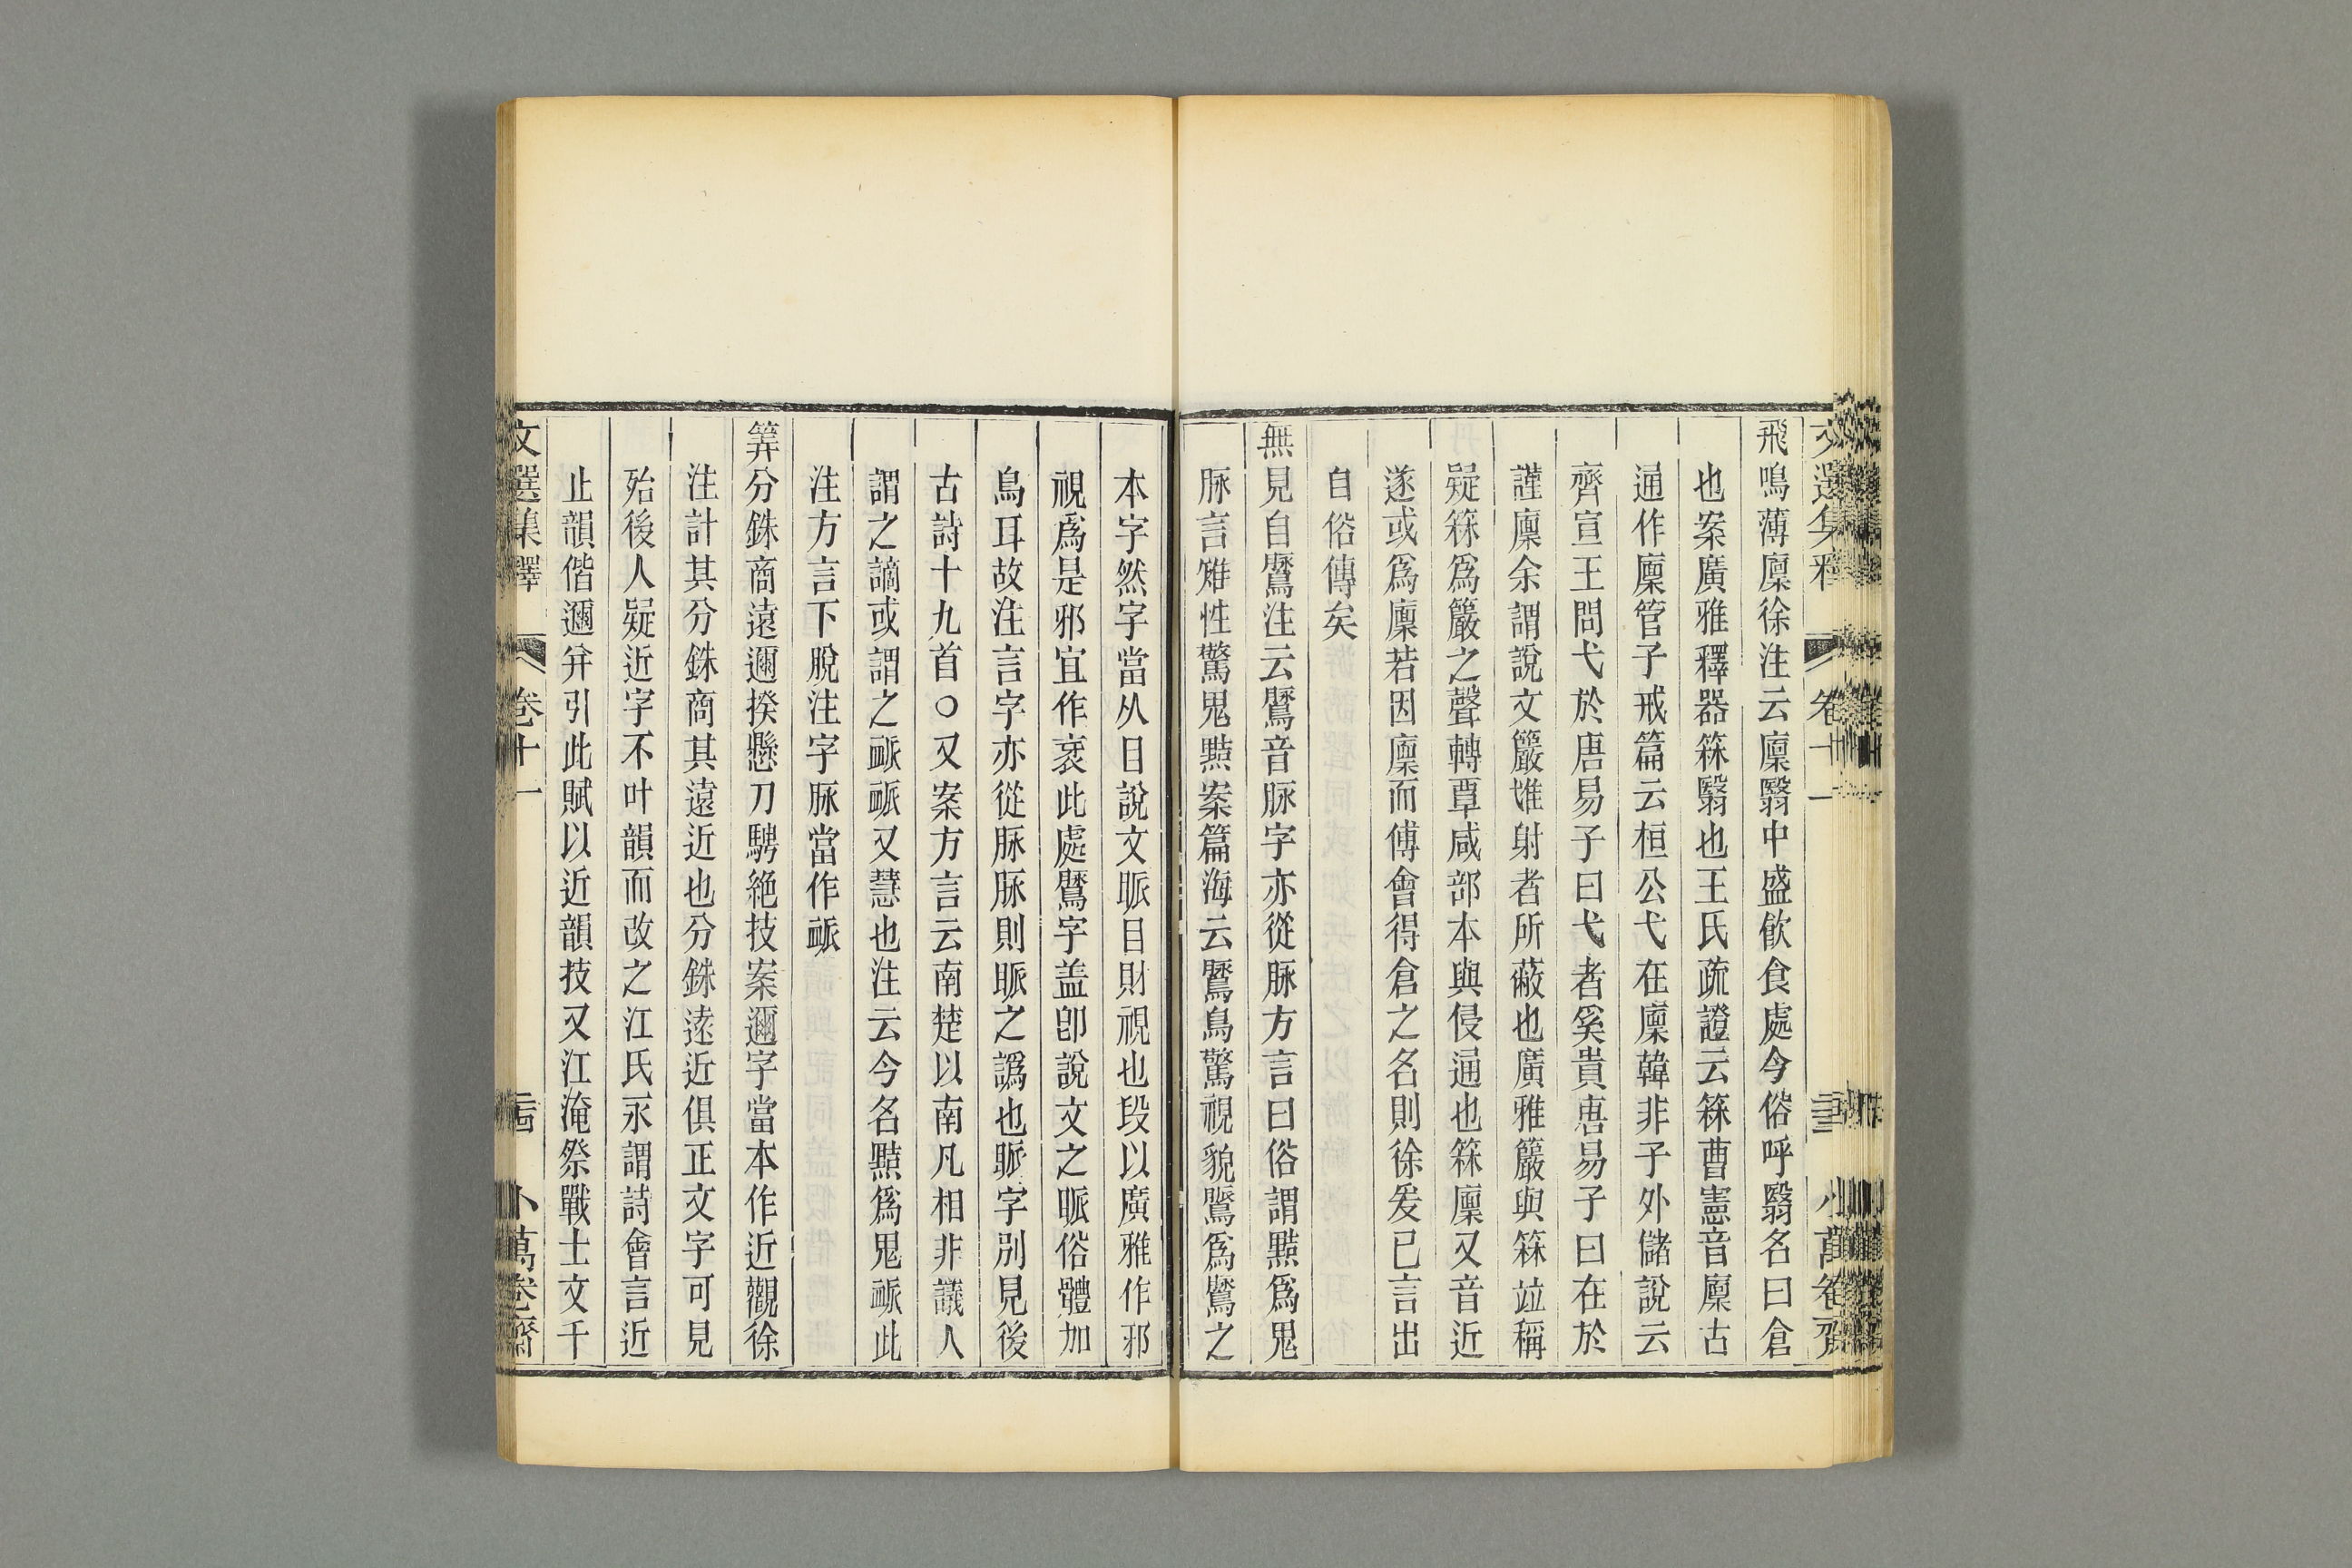 飛鳴薄廩徐注云廩翳中盛飲食處今俗呼翳名曰倉
也案廣雅釋器箖翳也王氏疏證云箖曹憲音廩古
通作廩管子戒篇云桓公弋在廩韓非子外儲說云
齊宣王問弋於唐易子曰弋者奚貴唐易子曰在於
謹廩余謂說文籢雉射者所蔽也廣雅籢與箖竝稱
疑箖爲籢之聲轉覃咸部本與侵通也箖廩又音近
遂或爲廩若因廩而傅會得倉之名則徐爰已言出
自俗傳矣
無見自鷖注云鷖音脉字亦從脉方言曰俗謂黠爲鬼
脉言雉性驚鬼黠案篇海云鷖鳥驚視貌鷖爲鷖之
本字然字當从目說文眽目財視也段以廣雅作邪
視爲是邪宜作衺此處鷖字盖卽說文之眽俗體加
鳥耳故注言字亦從脉脉則眽之譌也眽字別見後
古詩十九首○又案方言云南楚以南凡相非議人
謂之謫或謂之衇衇又慧也注云今名黠爲鬼衇此
注方言下脫注字脉當作衇
筭分銖商遠邇揆懸刀騁絕技案邇字當本作近觀徐
注計其分銖商其遠近也分銖遠近俱正文字可見
殆後人疑近字不叶韻而改之江氏永謂詩會言近
止韻偕邇并引此賦以近韻技又江淹祭戰士文千
文選集釋
卷十一
小萬卷齋